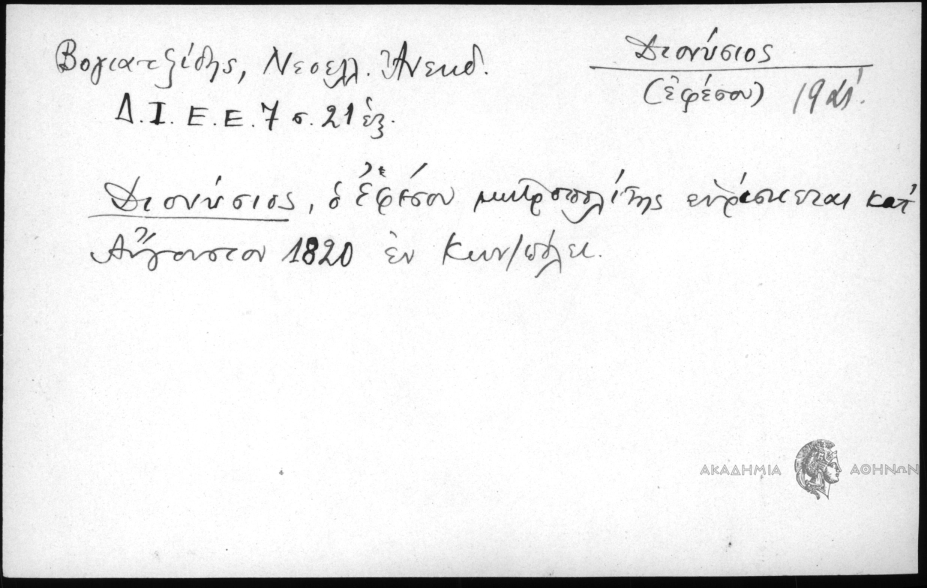 Βογιατζίδης, Νεοελλ. Ἀνεκδ.
Δ. Ι. Ε. Ε. 7 σ. 21 ἑξ.
Διονύσιος
(Ἐφέσου) 19 αἰ.
Διονύσιος, ὁ Ἐφέσου μητροπολίτης εὑρίσκεται κατ'
Αὔγουστον 1820 ἐν Κων/πόλει.
ΑΚΑΔΗΜΙΑ ΑΘΗΝΩΝ